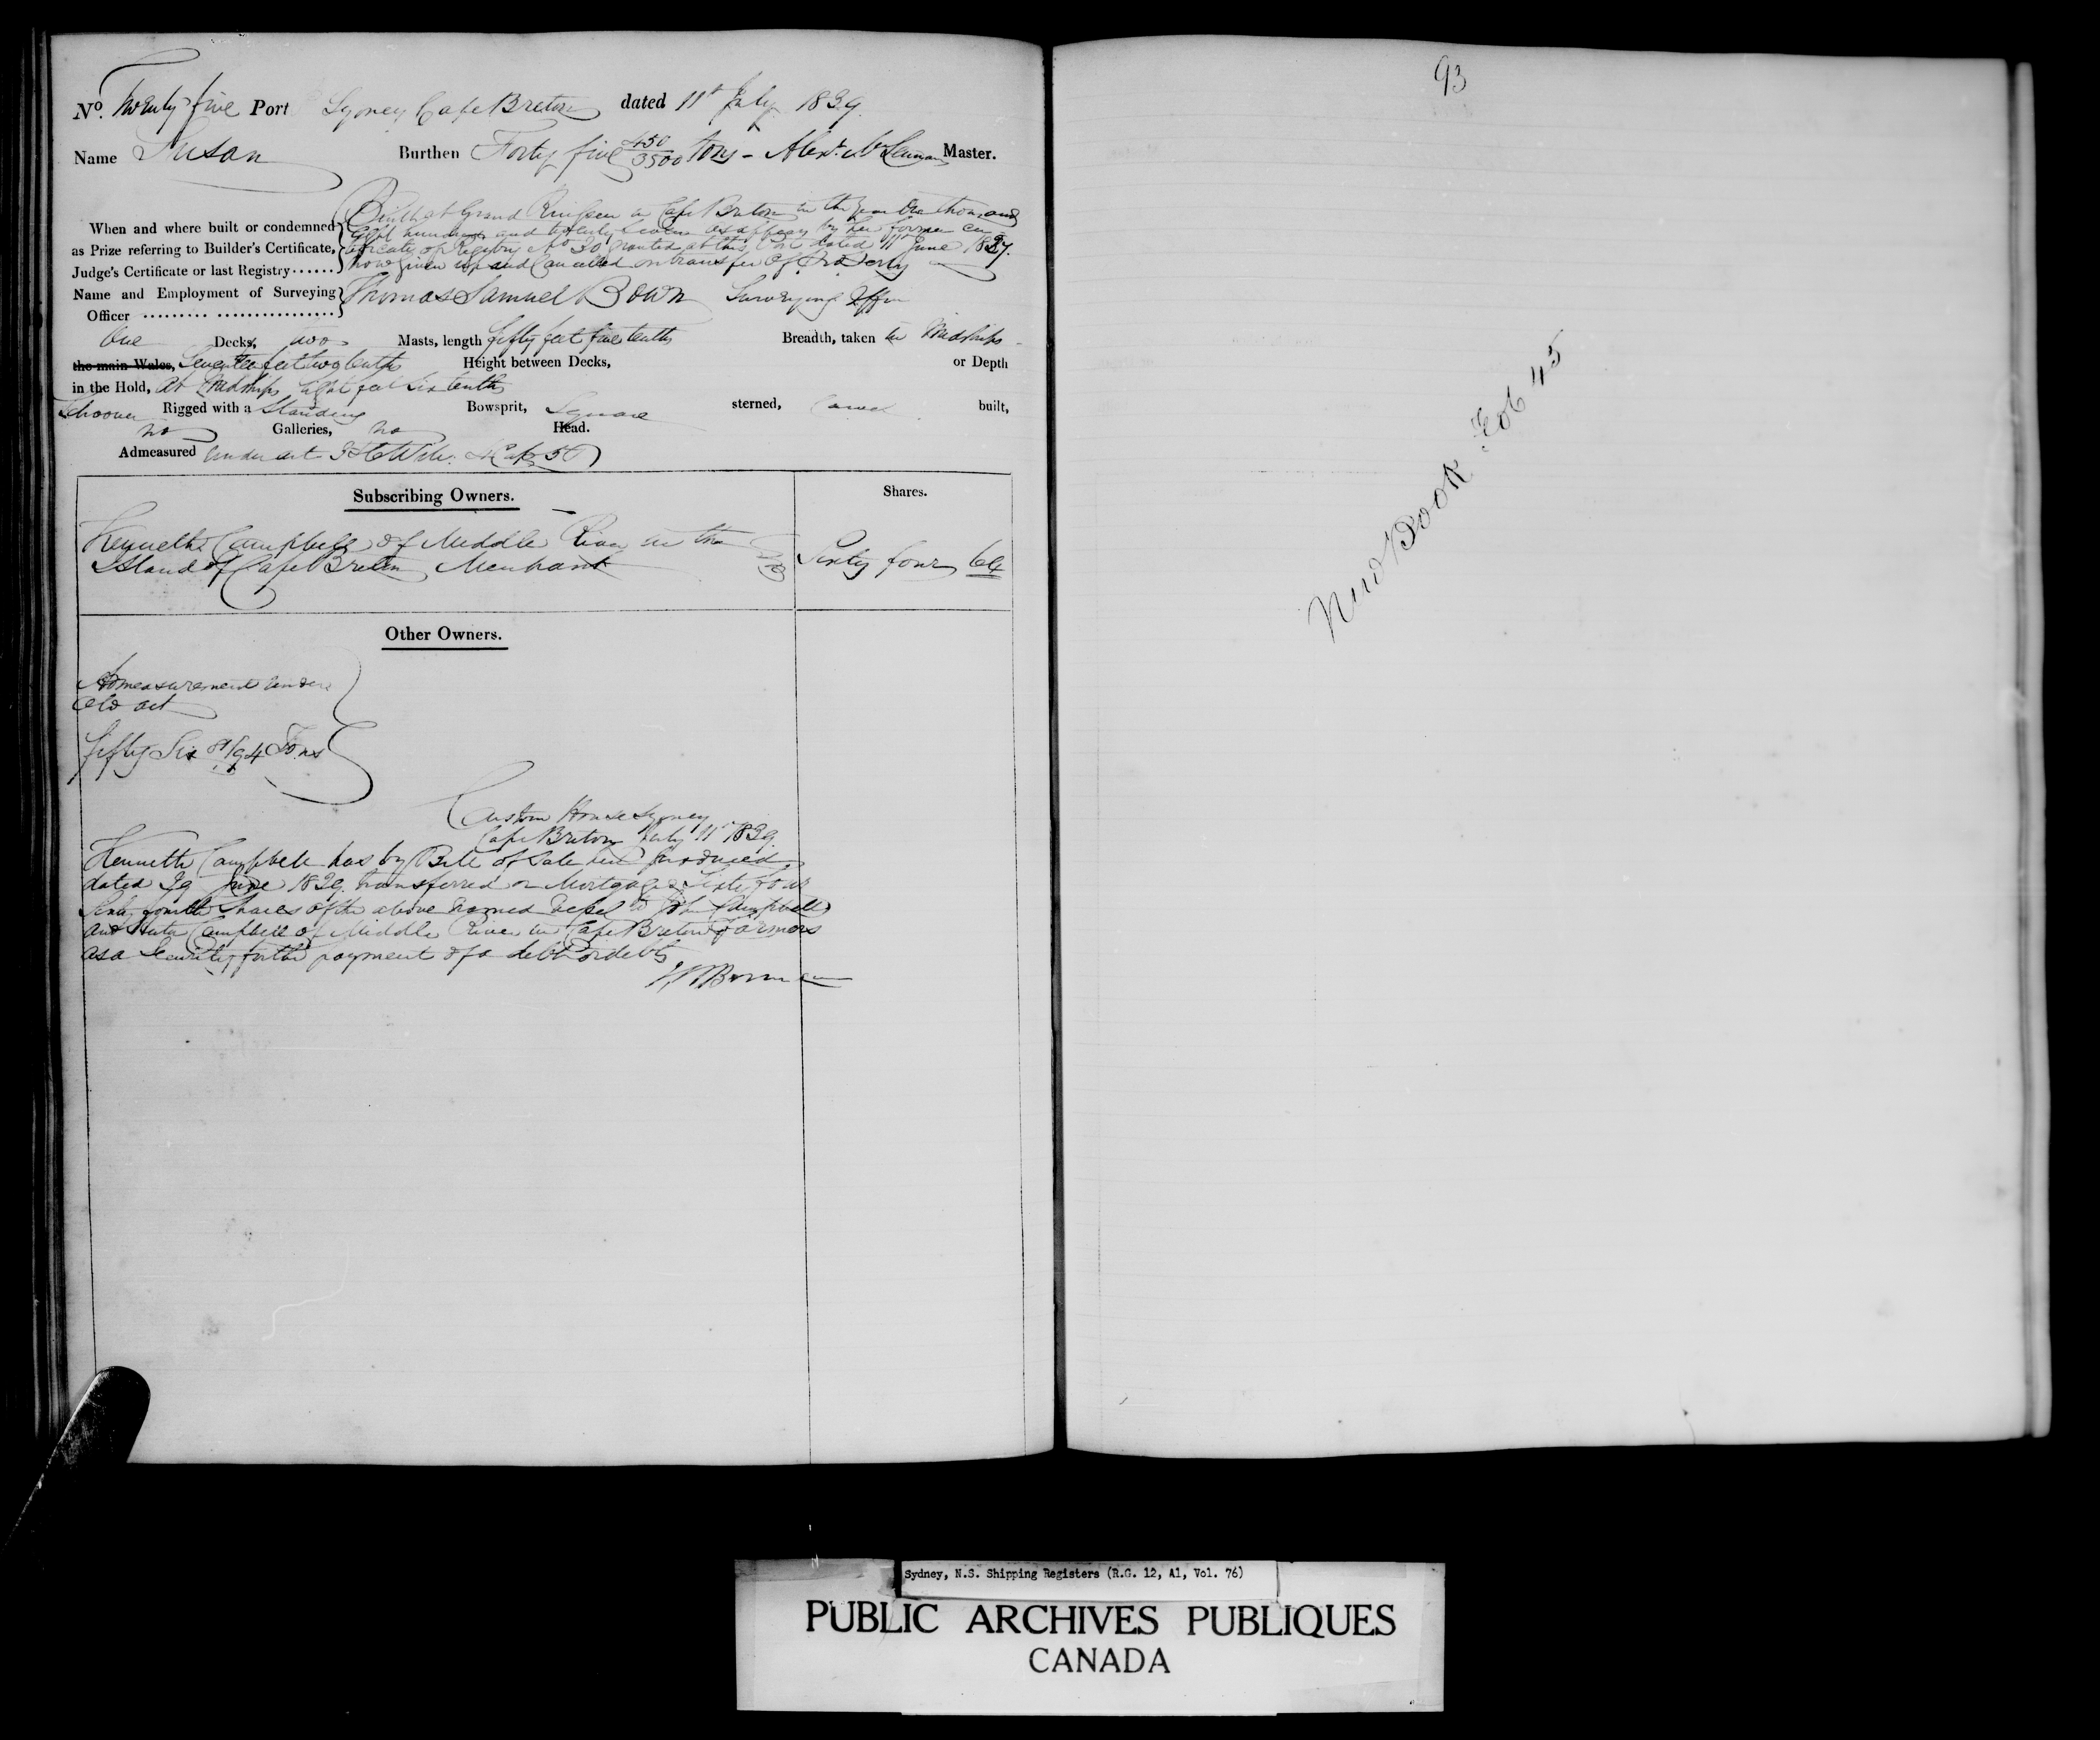 No. Twenty five Port Sydney Cape Breton dated 11th July 1839.
Name Susan Burthen Forty five 450/3500 tons - Alexr. McLennan Master.
When and where built or condemned as Prize referring to Builder's Certificate, Judge's Certificate or last Registry......
Built at Grand in Cape Breton in the year One thousand
Eight hundred and twenty seven as appears by her former cer
tificate of Registry No 20 granted at this Port dated 11th June 1837.
now given up and Cancelled on transfer of Property
Name and Employment of Surveying Officer Thomas Samuel Bown Surveying Officer
One Decks, two Masts, length fifty feet five tenths Breadth, taken in Midships
the main Wales, Seventeen feet two tenths Height between Decks, or Depth
in the Hold, at Midships eight feet six tenths
Schooner Rigged with a Standing Bowsprit, Square sterned, Carvel built,
no Galleries, no Head.
Admeasured under act
Subscribing Owners. Shares.
Kenneth Campbell of Middle River in the
Island of Cape Breton Merchant Sixty four 64
Other Owners.
Admeasurement under
Old act
fifty Six /94 Tons
Custom House Sydney
Cape Breton July 11th 1839.
Kenneth Campbell has by Bill of Sale here produced
dated 29 June 1839. transferred on Mortgage Sixty four
Sixty fourth Shares of the above named vessel to John Campbell
and Campbell of Middle River in Cape Breton Farmers
as a Security for the payment of a debt or debts
93
New Book Fol 45
Sydney, N.S. Shipping Registers (R.G. 12, A1, Vol. 76)
PUBLIC ARCHIVES PUBLIQUES
CANADA